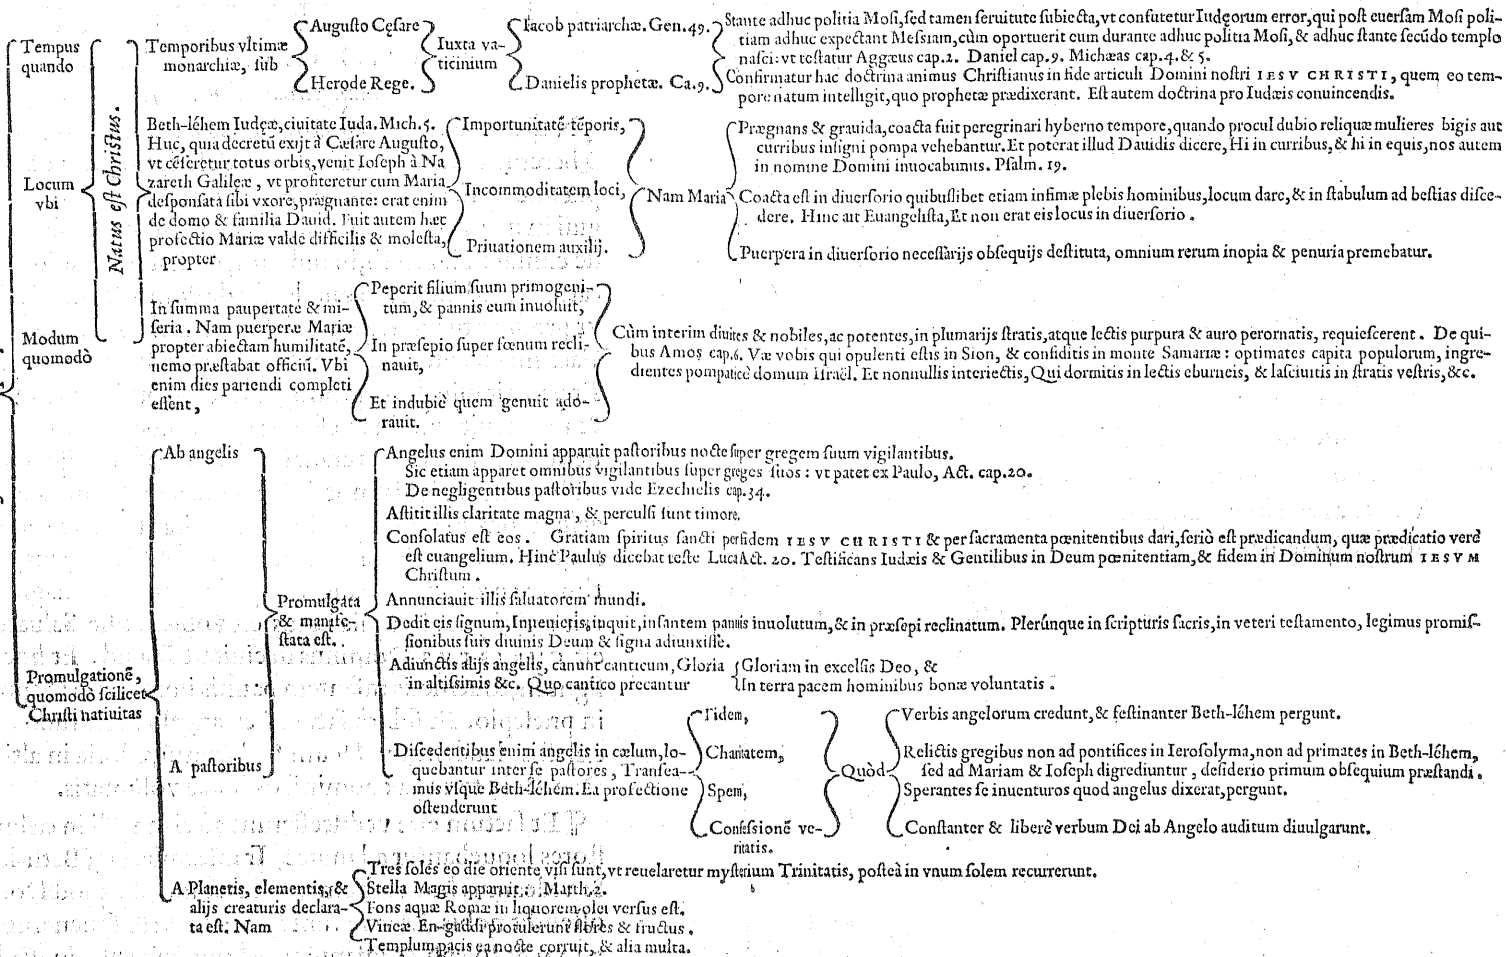 Tempus
quando
Natus est Christus.
Temporibus vltimæ
monarchiæ, sub
Augusto Cęsare
Herode Rege.
Iuxta va-
ticinium
Iacob patriarchæ. Gen. 49.
Danielis prophetæ. Ca. 9.
Stante adhuc politia Mosi, sed tamen seruitute subiecta, vt confutetur Iudęorum error, qui post euersam Mosi poli-
tiam adhuc expectant Messiam, cùm oportuerit eum durante adhuc politia Mosi, & adhuc stante secũdo templo
nasci: vt testatur Aggæus cap. 2. Daniel cap. 9. Michæas cap. 4. & 5.
Confirmatur hac doctrina animus Christianus in fide articuli Domini nostri IESV CHRISTI, quem eo tem-
pore natum intelligit, quo prophetæ prædixerant. Est autem doctrina pro Iudæis conuincendis.
Locum
vbi
Beth-léhem Iudęæ, ciuitate Iuda. Mich. 5.
Huc, quia decretũ exijt à Cæsare Augusto,
vt cẽseretur totus orbis, venit Ioseph à Na
zareth Galileæ, vt profiteretur cum Maria
desponsata sibi vxore, prægnante: erat enim
de domo & familia Dauid. Fuit autem hæc
profectio Mariæ valdè difficilis & molesta,
propter
Importunitatẽ tẽporis,
Incommoditatem loci,
Priuationem auxilij.
Nam Maria
Prægnans & grauida, coacta fuit peregrinari hyberno tempore, quando procul dubio reliquæ mulieres bigis aut
curribus insigni pompa vehebantur. Et poterat illud Dauidis dicere, Hi in curribus, & hi in equis, nos autem
in nomine Domini inuocabimus. Psalm. 19.
Coacta est in diuersorio quibuslibet etiam infimæ plebis hominibus, locum dare, & in stabulum ad bestias disce-
dere. Hinc ait Euangelista, Et non erat eis locus in diuersorio.
Puerpera in diuersorio necessarijs obsequijs destituta, omnium rerum inopia & penuria premebatur.
Modum
quomodò
In summa paupertate & mi-
seria. Nam puerperæ Mariæ
propter abiectam humilitatẽ,
nemo præstabat officiũ. Vbi
enim dies pariendi completi
essent,
Peperit filium suum primogeni-
tum, & pannis eum inuoluit,
In præsepio super fœnum recli-
nauit,
Et indubiè quem genuit ado-
rauit.
Cùm interim diuites & nobiles, ac potentes, in plumarijs stratis, atque lectis purpura & auro perornatis, requiescerent. De qui-
bus Amos cap. 6. Væ vobis qui opulenti estis in Sion, & confiditis in monte Samariæ: optimates capita populorum, ingre-
dientes pompaticè domum Israël. Et nonnullis interiectis, Qui dormitis in lectis eburneis, & lasciuitis in stratis vestris, &c.
Promulgationẽ,
quomodò scilicet
Christi natiuitas
Ab angelis
A pastoribus
Promulgata
& manife-
stata est.
Angelus enim Domini apparuit pastoribus nocte super gregem suum vigilantibus.
Sic etiam apparet omnibus vigilantibus super greges suos: vt patet ex Paulo, Act. cap. 20.
De negligentibus pastoribus vide Ezechielis cap. 34.
Astitit illis claritate magna, & perculsi sunt timore.
Consolatus est eos. Gratiam spiritus sancti per fidem IESV CHRISTI & per sacramenta pœnitentibus dari, seriò est prædicandum, quæ prædicatio verè
est euangelium. Hinc Paulus dicebat teste Luca Act. 20. Testificans Iudæis & Gentilibus in Deum pœnitentiam, & fidem in Dominum nostrum IESVM
Christum.
Annunciauit illis saluatorem mundi.
Dedit eis signum, Inuenietis, inquit, infantem pannis inuolutum, & in præsepi reclinatum. Plerúnque in scripturis sacris, in veteri testamento, legimus promis-
sionibus suis diuinis Deum & signa adiunxisse.
Adiunctis alijs angelis, canunt canticum, Gloria
in altissimis &c. Quo cantico precantur
Gloriam in excelsis Deo, &
In terra pacem hominibus bonæ voluntatis.
Discedentibus enim angelis in cælum, lo-
quebantur inter se pastores, Transea-
mus vsque Beth-léhem. Ea profectione
ostenderunt
Fidem,
Charitatem,
Spem,
Confessionẽ ve-
ritatis.
Quòd
Verbis angelorum credunt, & festinanter Beth-léhem pergunt.
Relictis gregibus non ad pontifices in Ierosolyma, non ad primates in Beth-léhem,
sed ad Mariam & Ioseph digrediuntur, desiderio primum obsequium præstandi.
Sperantes se inuenturos quod angelus dixerat, pergunt.
Constanter & liberè verbum Dei ab Angelo auditum diuulgarunt.
A Planetis, elementis, &
alijs creaturis declara-
ta est. Nam
Tres soles eo die oriente visi sunt, vt reuelaretur mysterium Trinitatis, posteà in vnum solem recurrerunt.
Stella Magis apparuit. Matth. 2.
Fons aquæ Romæ in liquorem olei versus est.
Vineæ En-gaddi protulerunt flores & fructus.
Templum pacis ea nocte corruit, & alia multa.